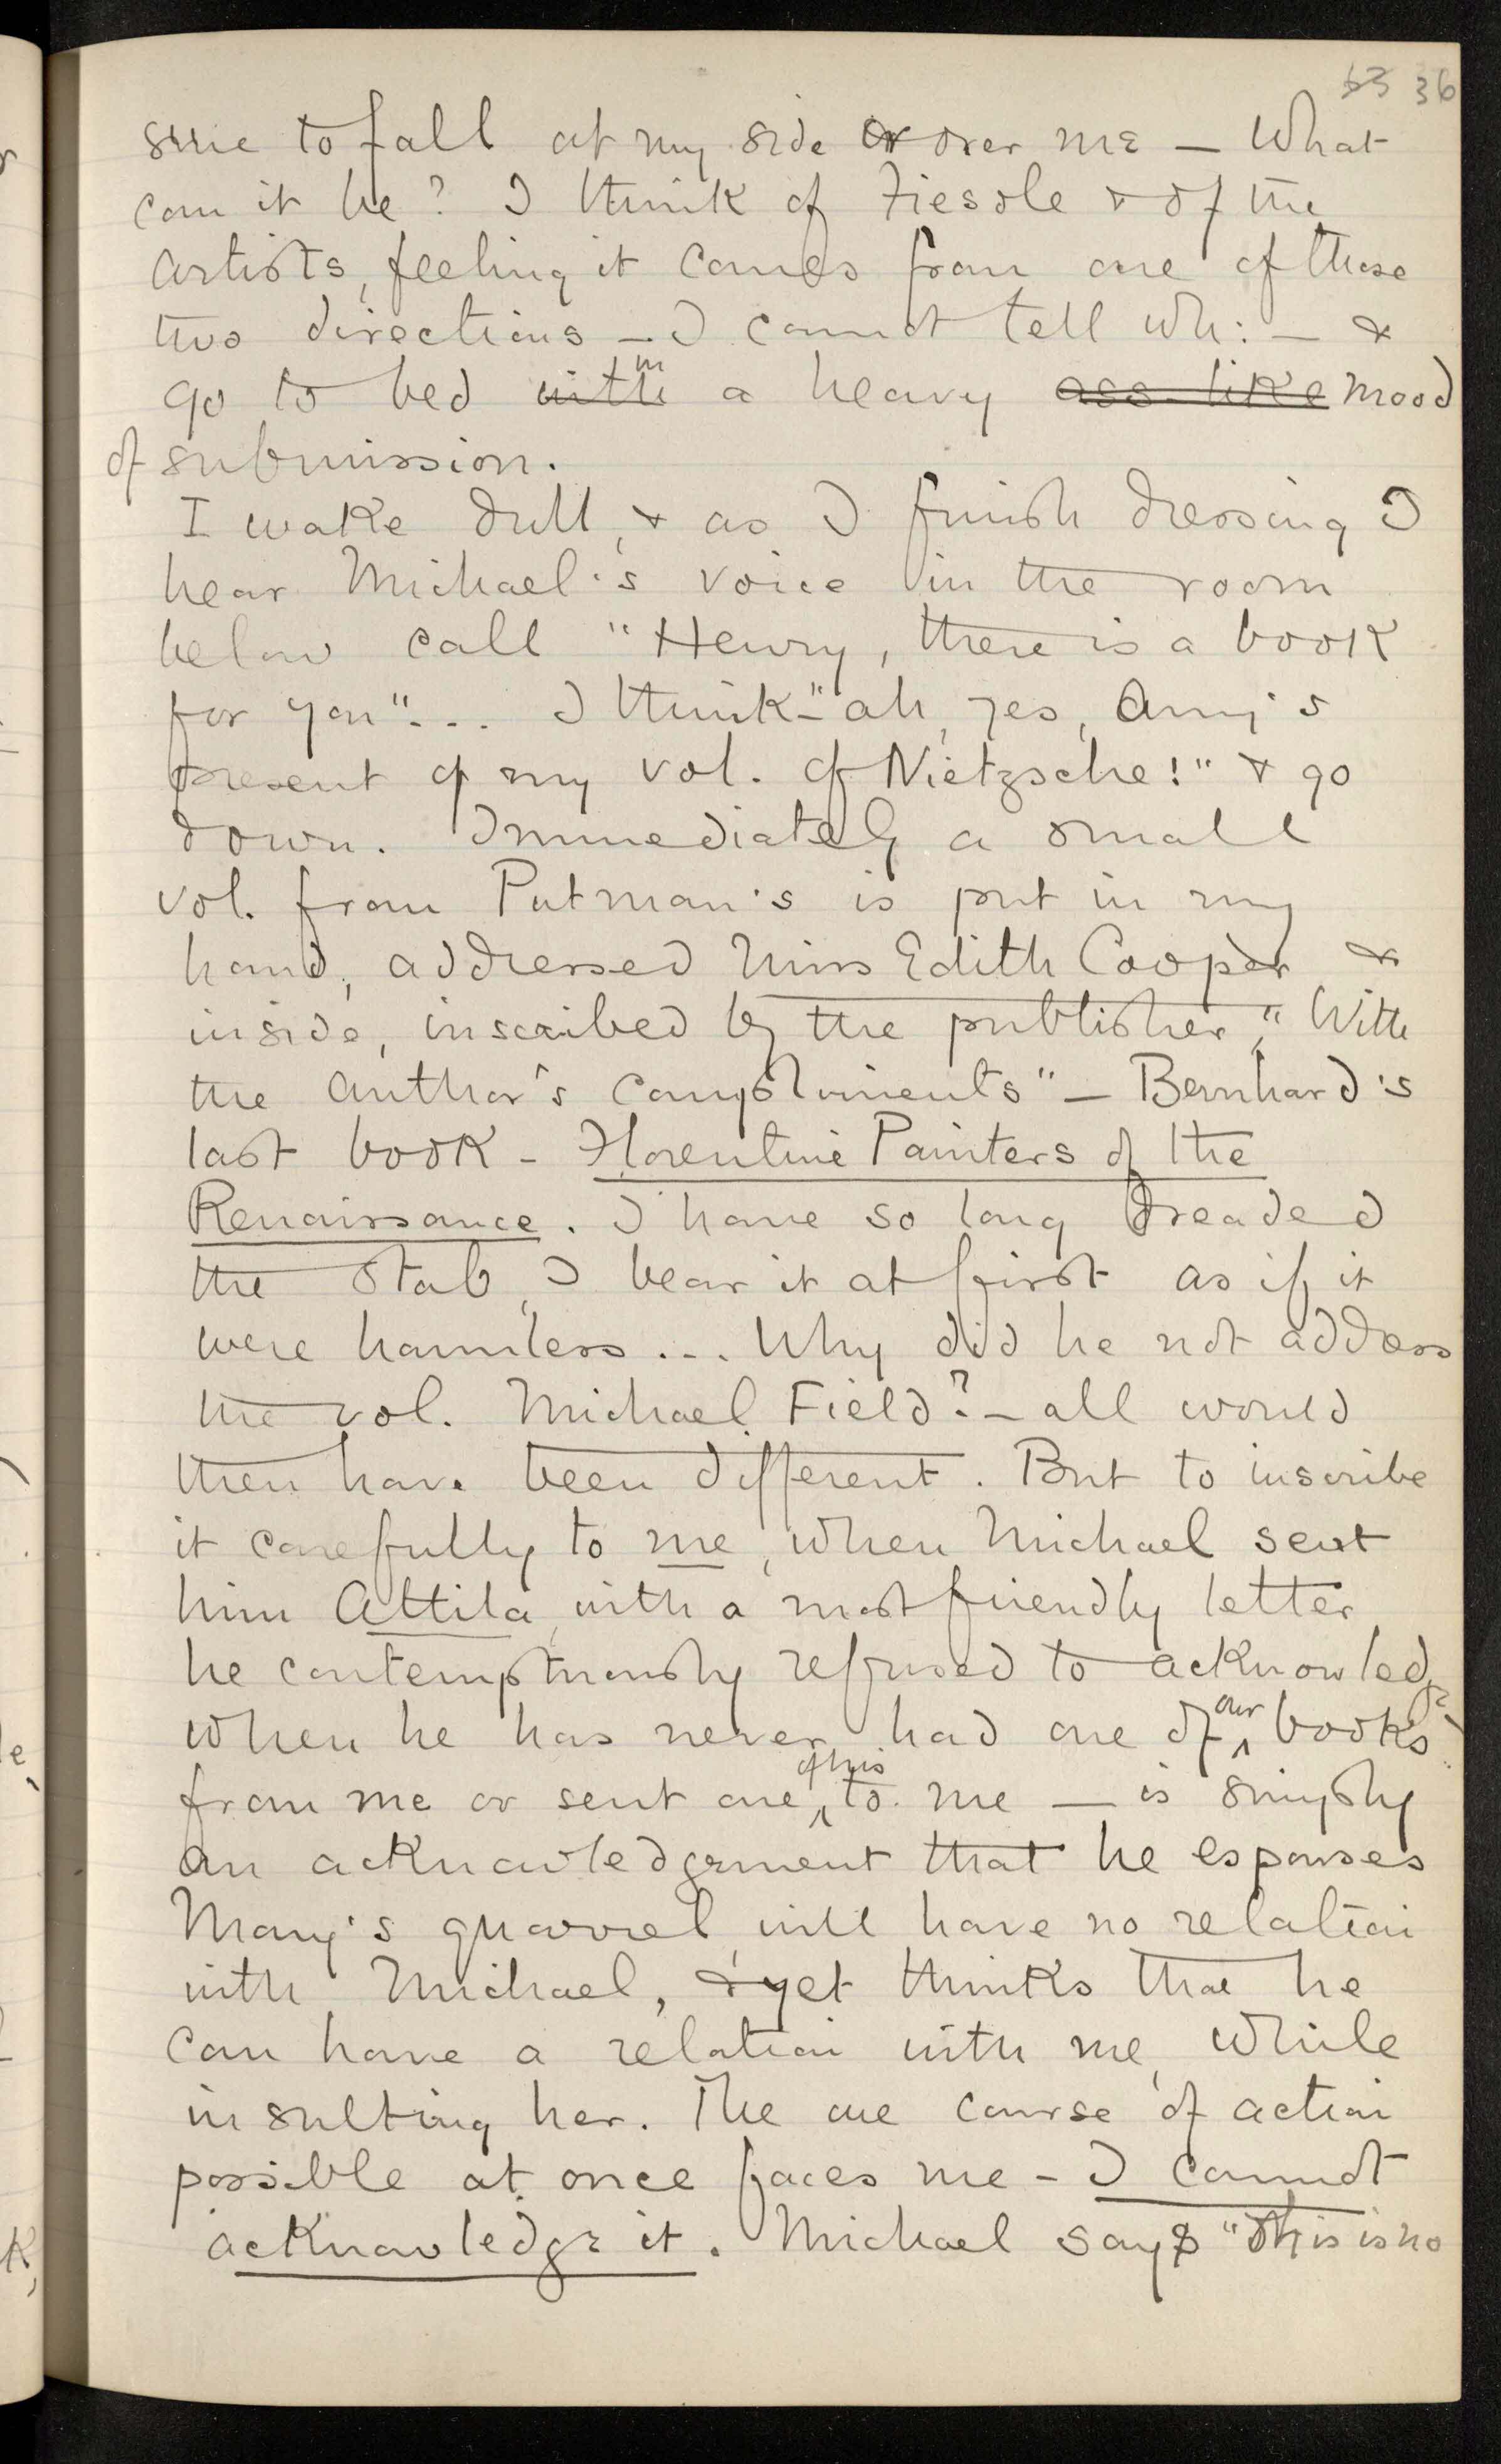 63 36
sure to fall at my side or over me — What
can it be? I think of Fiesole & of the
artists, feeling it comes from one of these
two directions — I cannot tell wh: — &
go to bed with in a heavy ass-like mood
of submission.
I wake dull, & as I finish dressing I
hear Michael's voice in the room
below call "Henry, there is a book
for you"... I think — "ah, yes, Amy's
present of my vol. of Nietzsche!" & go
down. Immediately a small
vol. from Putman's is put in my
hand, addressed Miss Edith Cooper &
inside, inscribed by the publisher, "With
the author's compliments" — Bernhard's
last book - Florentine Painters of the
Renaissance. I have so long dreaded
the stab, I bear it at first as if it
were harmless... Why did he not address
the vol. Michael Field? — all would
then have been different. But to inscribe
it carefully to me, when Michael sent
him Attila, with a most friendly letter
he contemptuously refused to acknowledge
when he has never had one of our books
from me or sent one of his to me — is simply
an acknowledgement that he espouses
Mary's quarrel, will have no relation
with Michael, & yet thinks that he
can have a relation with me, while
insulting her. The one course of action
possible at once faces me - I cannot
acknowledge it. Michael says "This is no